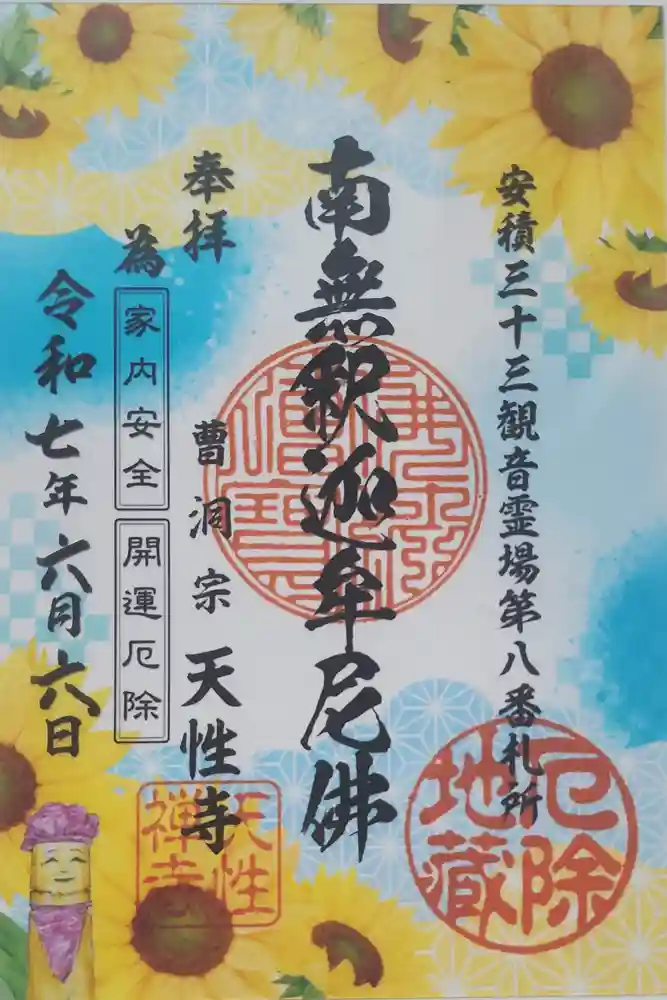 安積三十三観音霊場第八番札所
厄除
地蔵
南無釈迦牟尼佛
奉拝
曹洞宗 天性寺
天性
禅寺
為
家内安全
開運厄除
令和七年六月六日